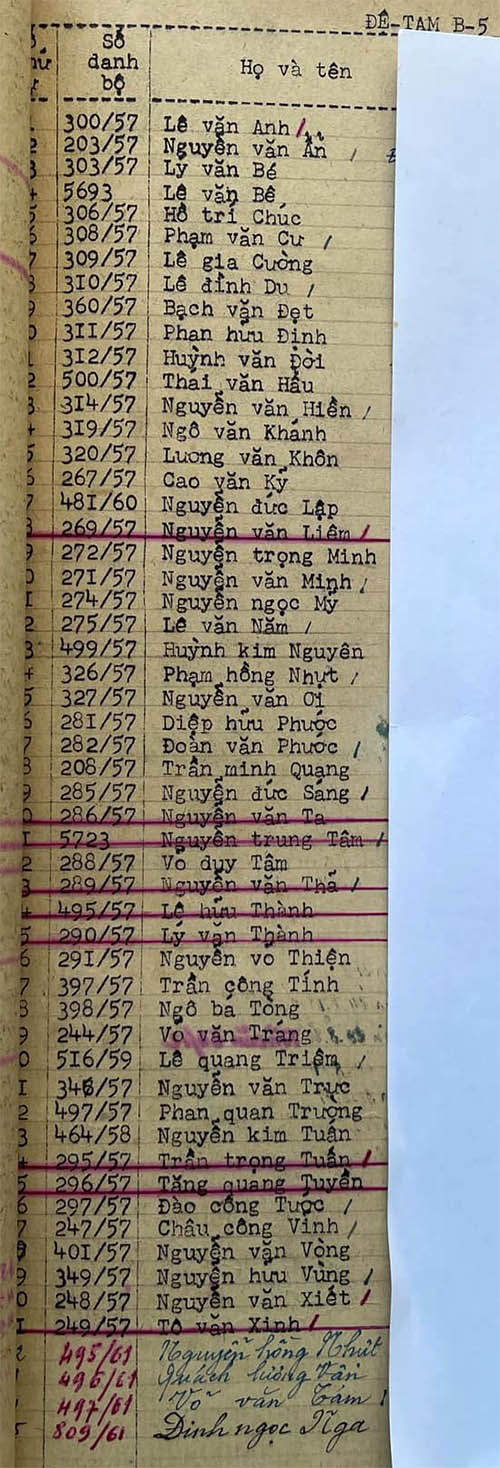 ĐÊ-TAM B-5
Số danh bộ Họ và tên
300/57 Lê văn Anh /
203/57 Nguyễn văn Ẩn /
303/57 Lý văn Bé
5693 Lê văn Bê
306/57 Hồ trí Chúc
308/57 Phạm văn Cư /
309/57 Lê gia Cường
3I0/57 Lê đình Du /
360/57 Bạch văn Đẹt
3II/57 Phan hữu Định
3I2/57 Huỳnh văn Đời
500/57 Thai văn Hầu
3I4/57 Nguyễn văn Hiền /
3I9/57 Ngô văn Khánh
320/57 Lương văn Khôn
267/57 Cao văn Kỹ
48I/60 Nguyễn đức Lập
269/57 Nguyễn văn Liêm /
272/57 Nguyễn trọng Minh
27I/57 Nguyễn văn Minh /
274/57 Nguyễn ngọc Mỹ
275/57 Lê văn Năm /
499/57 Huỳnh kim Nguyên
326/57 Phạm hồng Nhựt /
327/57 Nguyễn văn Ơi
28I/57 Diệp hữu Phước
282/57 Đoàn văn Phước /
208/57 Trần minh Quang
285/57 Nguyễn đức Sáng /
286/57 Nguyễn văn Ta
5723 Nguyễn trung Tâm /
288/57 Vo duy Tâm
289/57 Nguyễn văn Thá /
495/57 Lê hữu Thành
290/57 Lý văn Thành
29I/57 Nguyễn vo Thiện
397/57 Trần công Tính
398/57 Ngô bá Tòng
244/57 Võ văn Tráng
5I6/59 Lê quang Triêm /
346/57 Nguyễn văn Trực
497/57 Phan quan Trường
464/58 Nguyễn kim Tuấn
295/57 Trần trọng Tuấn /
296/57 Tăng quang Tuyền
297/57 Đào công Tược /
247/57 Châu công Vinh /
40I/57 Nguyễn văn Vòng
349/57 Nguyễn hưu Vùng /
248/57 Nguyễn văn Xiết /
249/57 Tô văn Xinh /
495/61 Nguyễn hồng Nhứt
496/61 Quách hường Vân
497/61 Võ văn Tám
809/61 Đinh ngọc Nga